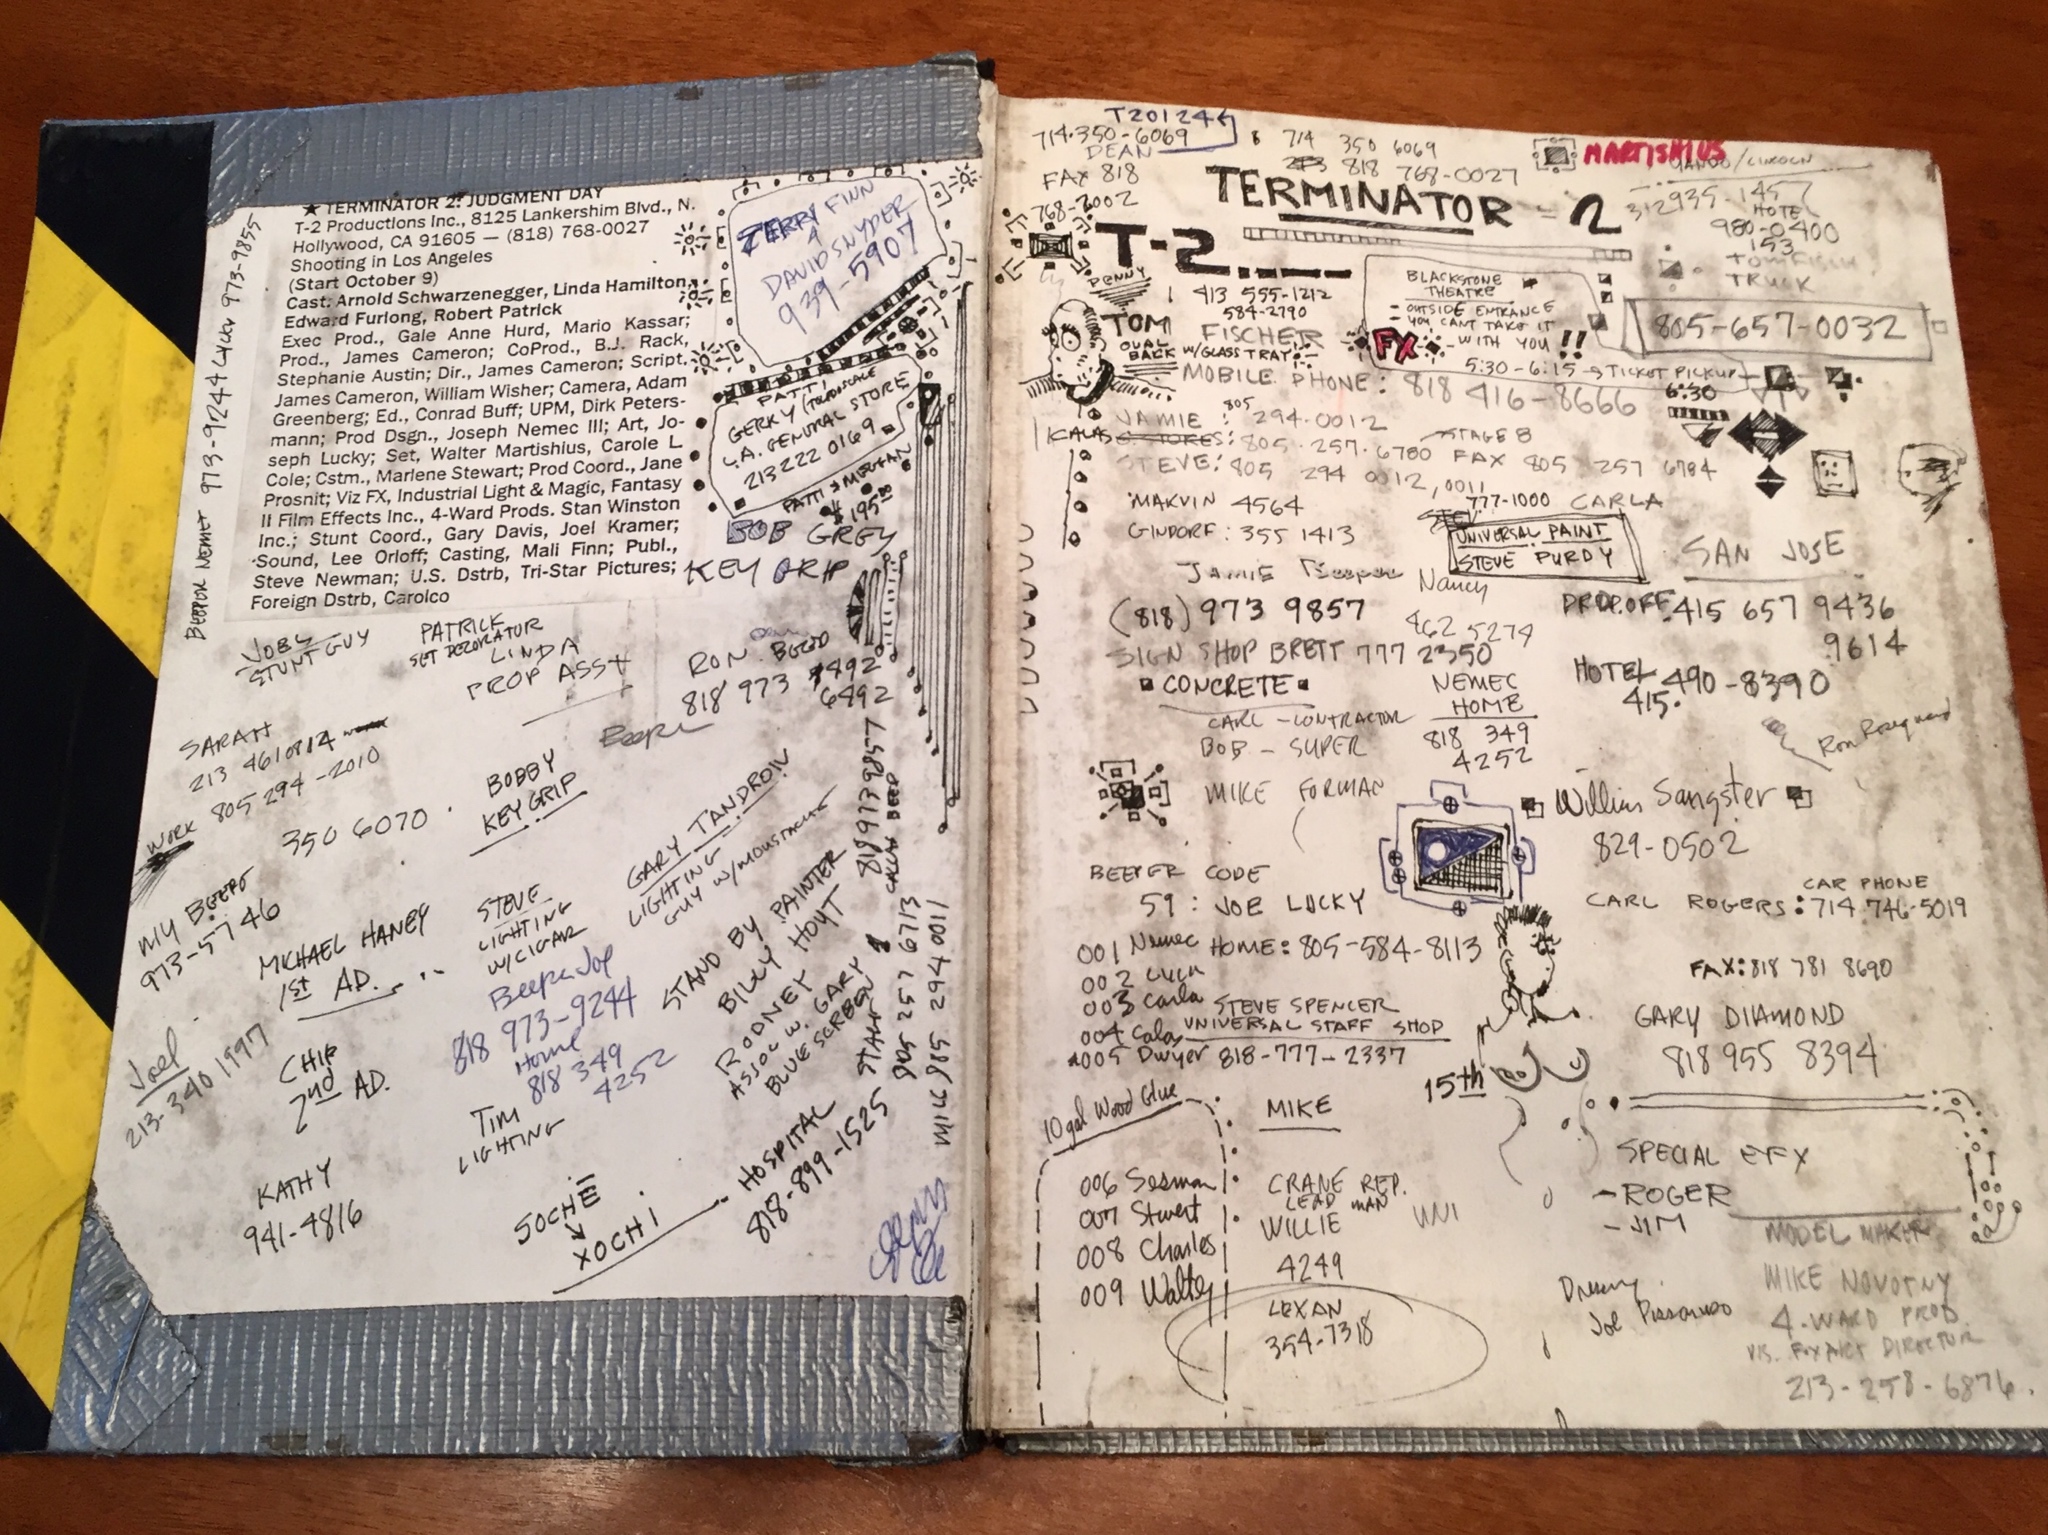 ★ TERMINATOR 2: JUDGMENT DAY
T-2 Productions Inc., 8125 Lankershim Blvd., N.
Hollywood, CA 91605 — (818) 768-0027
Shooting in Los Angeles
(Start October 9)
Cast: Arnold Schwarzenegger, Linda Hamilton,
Edward Furlong, Robert Patrick
Exec Prod., Gale Anne Hurd, Mario Kassar;
Prod., James Cameron; CoProd., B.J. Rack,
Stephanie Austin; Dir., James Cameron; Script.
James Cameron, William Wisher; Camera, Adam
Greenberg; Ed., Conrad Buff; UPM, Dirk Peters-
mann; Prod Dsgn., Joseph Nemec III; Art, Jo-
seph Lucky; Set, Walter Martishius, Carole L
Cole; Cstm., Marlene Stewart; Prod Coord., Jane
Prosnit; Viz FX, Industrial Light & Magic, Fantasy
II Film Effects Inc., 4-Ward Prods. Stan Winston
Inc.; Stunt Coord., Gary Davis, Joel Kramer;
Sound, Lee Orloff; Casting, Mali Finn; Publ.,
Steve Newman; U.S. Dstrb, Tri-Star Pictures;
Foreign Dstrb, Carolco
BEEPER NEMEC 973-9244 LUCKY 973-9855
JERRY FINN
DAVID SNYDER
939-5907
PATTI
GERKY
L.A. GENERAL STORE
213 222 0169
PATTI
$195.00
BOB GREY
KEY GRIP
STUNT GUY
PATRICK
SET DECORATOR
LINDA
PROP ASST
RON
818 973 7492
6492
SARAH
213 461 0814
WORK 805 294-2010
350 6070
BOBBY
KEY GRIP
MY BEEPER
973-5746
MICHAEL HANEY
1ST AD.
STEVE
LIGHTING
W/CIGAR
GARY TANDROW
LIGHTING
GUY W/MOUSTACHE
Beeper Joe
818 973-9244
Home
818 349
4252
STAND BY PAINTER
BILLY HOYT
RODNEY
ASSOC W. GARY
BLUE SCREEN
818 973 9857
CALAS BEEP
STAFF
805 257 6713
805 294 0011
Joel
213-340 1997
CHIP
2nd AD.
TIM
LIGHTING
KATHY
941-4816
SOCHĒ
XOCHI
HOSPITAL
818-899-1525
T20124
714-350-6069
DEAN
FAX 818
768-2002
714 350 6069
818 768-0027
MARTISHIUS
TERMINATOR - 2
T-2
312 935-1457
HOTEL
980-0400
153
TOM FISHER
TRUCK
805-657-0032
PENNY
413 555-1212
584-2790
TOM FISCHER
OVAL
BACK W/GLASS TRAY
MOBILE PHONE: 818 416-8666
BLACKSTONE
THEATRE
- OUTSIDE ENTRANCE
- YOU CANT TAKE IT
WITH YOU!!
FX
5:30-6:15 → TICKET PICKUP
6:30
JAMIE: 805 294-0012
KALAS
805-257-6780 FAX 805 257 6784
STAGE 8
STEVE: 805 294 0012, 0011
MARVIN 4564
GINDORF: 355 1413
777-1000 CARLA
UNIVERSAL PAINT
STEVE PURDY
JAMIE Beeper
(818) 973 9857
Nancy
462 5274
SIGN SHOP BRETT 777 2350
SAN JOSE
DROP.OFF. 415 657 9436
9614
HOTEL
415. 490-8390
CONCRETE
CARL - CONTRACTOR
BOB - SUPER
MIKE FORMAN
NEMEC
HOME
818 349
4252
William Sangster
829-0502
BEEPER CODE
59: JOE LUCKY
001 Nemec HOME: 805-584-8113
002
003 Carla
004 Calas
005 Dwyer
STEVE SPENCER
UNIVERSAL STAFF SHOP
818-777-2337
CAR PHONE
CARL ROGERS: 714-746-5019
FAX: 818 781 8690
GARY DIAMOND
818 955 8394
15th
10 gal Wood Glue
MIKE
006 Sesman
007 Stuart
008 Charles
009 Walter
CRANE REP.
LEAD MAN
WILLIE
4249
UNI
LEXAN
354-7318
SPECIAL EFX
- ROGER
- JIM
MODEL MAKER
MIKE NOVOTNY
4-WARD PROD
VIS. FX ART DIRECTOR
213-258-6876